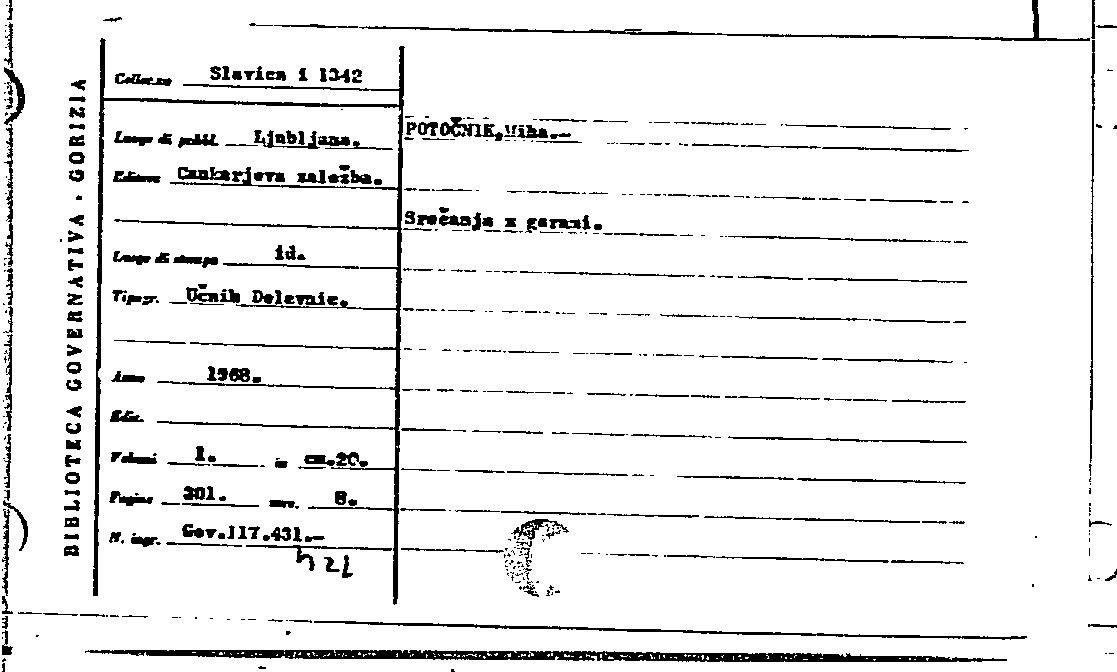 BIBLIOTECA GOVERNATIVA - GORIZIA
Collocaz. Slavica i 1342
Luogo di pubbl. Ljubljana.
Editore Cankarjeva založba.
Luogo di stampa id.
Tipogr. Učnih Delavnic.
Anno 1968.
Ediz.
Volumi 1. in cm.20.
Pagine 201. tav. 8.
N. ingr. Gov.117.431.-
421
POTOČNIK,Miha.-
Srečanja z gorami.